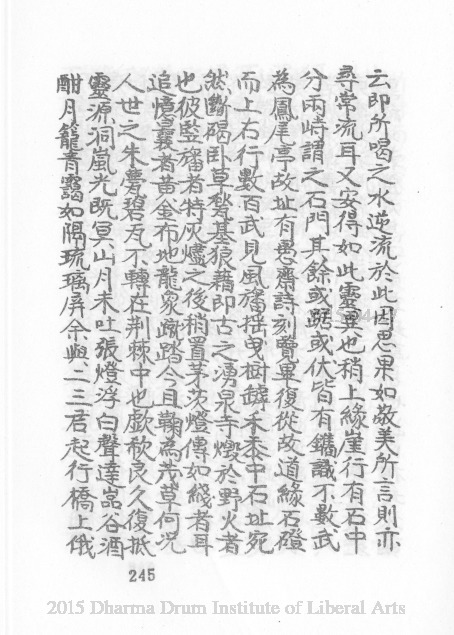 云即所喝之水逆流於此因思果如敬美所言則亦
尋常流耳又安得如此靈異也稍上緣崖行有石中
分兩峙謂之石門其餘或踞或伏皆有鐫識不數武
為鳳尾亭故址有愚齋詩刻覽畢復從故道緣石磴
而上右行數百武見風旛搖曳樹罅禾黍中石址宛
然斷碣臥草甃基狼藉即古之湧泉寺燬於野火者
也彼豎旛者特灰燼之後稍置茅茨燈傳如綫者耳
追憶曩者黃金布地龍象蹴踏今且鞠為茂草何況
人世之朱甍碧瓦不轉在荆棘中也歔欷良久復抵
靈源洞嵐光既冥山月未吐張燈浮白聲達嵓谷酒
酣月籠青靄如隔琉璃屏余與二三君起行橋上俄
245
2015 Dharma Drum Institute of Liberal Arts